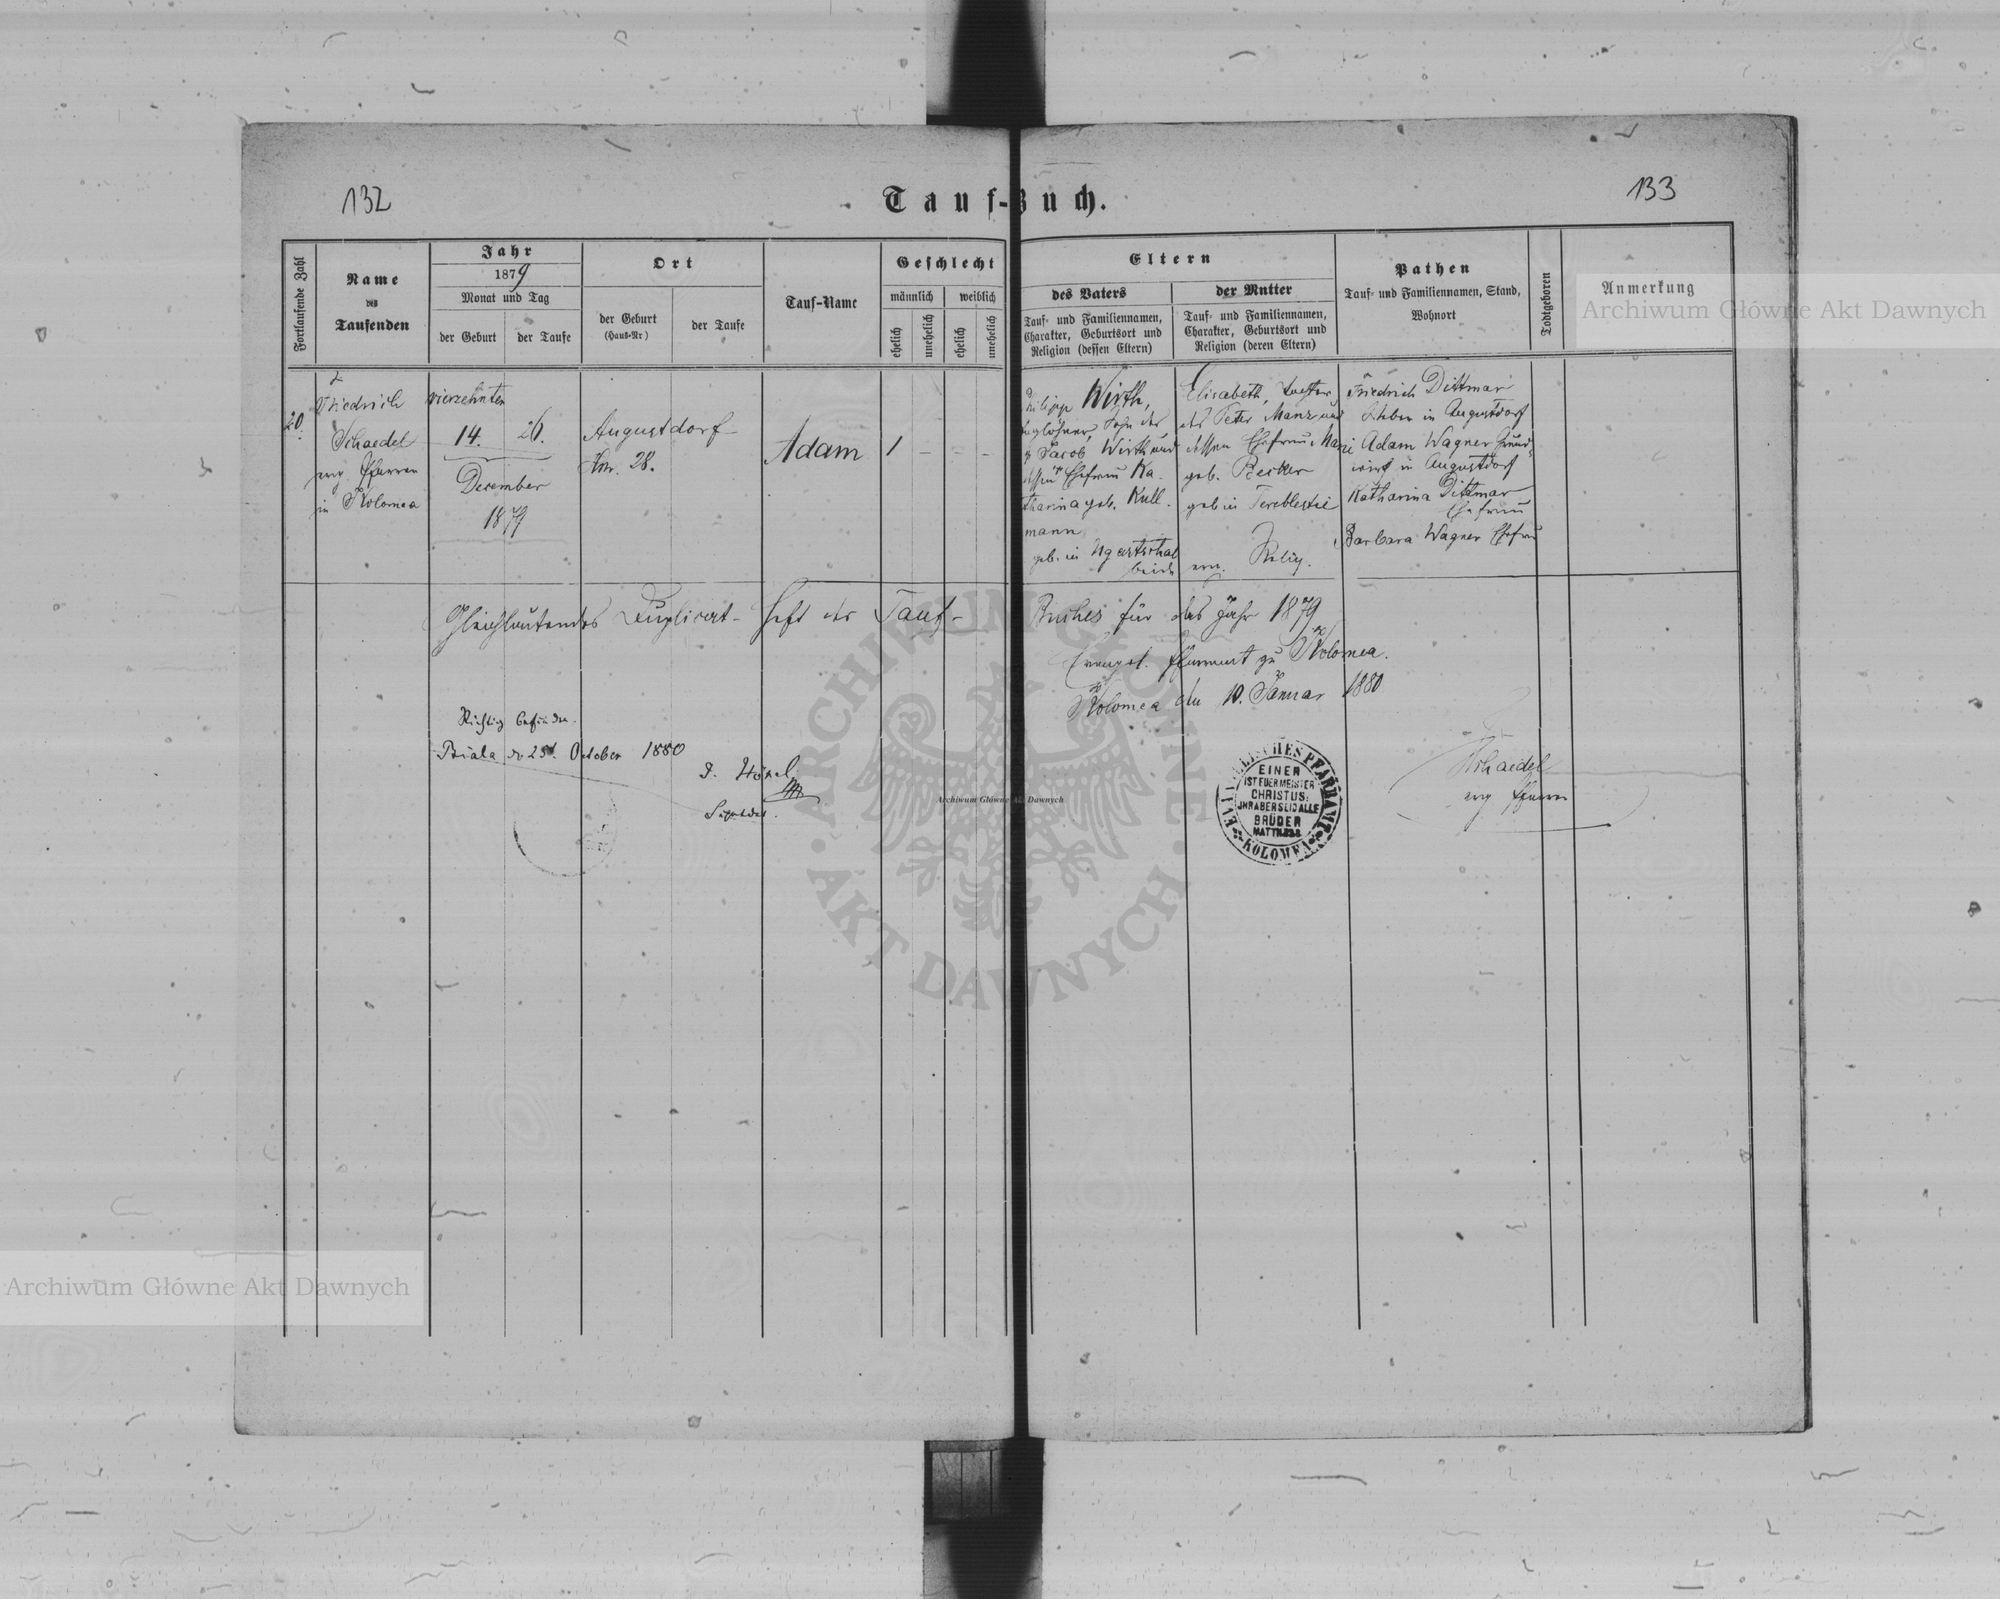 132
Tauf-Buch.
133
Fortlaufende Zahl
Name
des
Taufenden
Jahr
1879
Monat und Tag
der Geburt
der Taufe
Ort
der Geburt
(Haus-Nr)
der Taufe
Tauf-Name
Geschlecht
männlich
weiblich
ehelich
unehelich
ehelich
unehelich
Eltern
des Vaters
Tauf- und Familiennamen,
Charakter, Geburtsort und
Religion (dessen Eltern)
der Mutter
Tauf- und Familiennamen,
Charakter, Geburtsort und
Religion (deren Eltern)
Pathen
Tauf- und Familiennamen, Stand,
Wohnort
Todtgeboren
Anmerkung
20.
Friedrich
Schaedel
evg. Pfarrer
in Kolomea
vierzehnten
14.
26.
December
1879
Augustdorf
Hnr. 28.
Adam
1 - - -
Philipp Wirth,
Taglöhner, Sohn des
Jacob Wirth und
dessen Ehefrau Ka-
tharina geb. Kull-
mann
geb. in Ugartsthal
beide
Elisabeth, Tochter
des Peter Manz und
dessen Ehefrau Mari
geb. Becker
geb in Tereblestie
evn. Relig.
Friedrich Dittmar
in Augustdorf
Adam Wagner Grund-
wirt in Augustdorf
Katharina Dittmar
Ehefrau
Barbara Wagner Ehefrau
Gleichlautendes Duplicat-Heft des Tauf-
Buches für das Jahr 1879
Evangel. Pfarramt zu Kolomea.
Kolomea den 10. Januar 1880
Richtig befunden.
Biala den 25t. October 1880
Schaedel
evg Pfarrer
EVANGELISCHES PFARRAMT
EINER
IST EUER MEISTER
CHRISTUS:
IHR ABER SEID ALLE
BRÜDER
MATTH. 23.8
KOLOMEA
Archiwum Główne Akt Dawnych
ARCHIWUM GŁÓWNE
AKT DAWNYCH
Archiwum Główne Akt Dawnych
Archiwum Główne Akt Dawnych